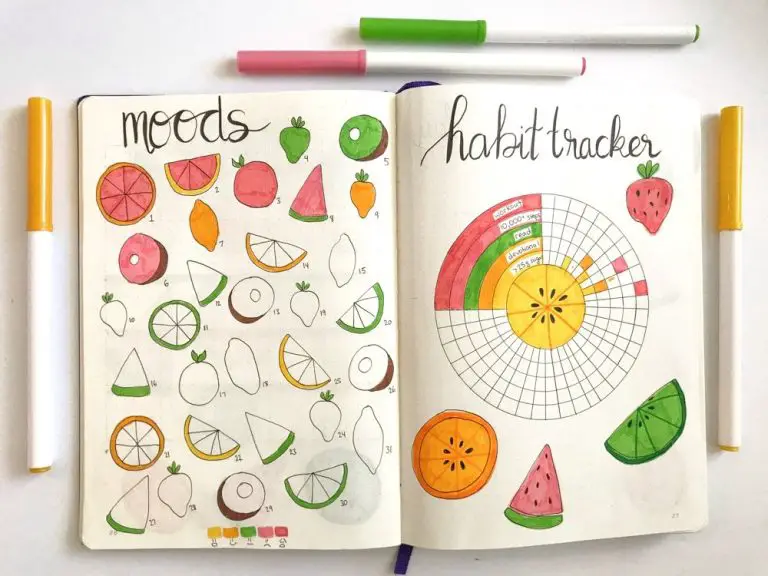 moods
4
5
1
2
3
8
9
7
6
14
15
12
13
19
10
11
20
16
17
18
25
26
24
21
22
23
31
27
28
29
30
habit tracker
workout
10,000+ steps
read
devotional
27